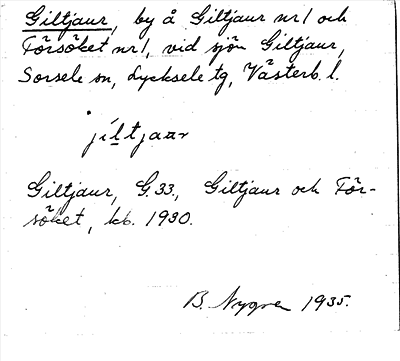 Giltjaur, by å Giltjaur nr 1 och
Försöket nr 1, vid sjön Giltjaur,
Sorsele sn, Lycksele tg, Västerb. l.
jíltjaar
Giltjaur, G. 33, Giltjaur och För-
söket, kb. 1930.
B. Nygren 1935.